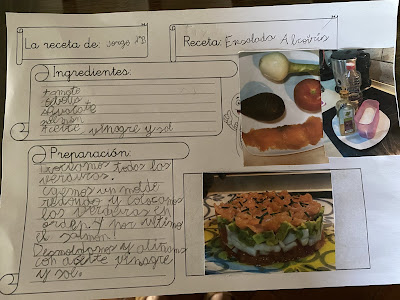 La receta de: Jorge
Receta: Ensalada
Ingredientes:
tomate
cebolla
aguacate
salmón
Aceite vinagre y sal
Preparación:
Troceamos todas las
verduras.
Cogemos un molde
redondo y colocamos
las verduras en
orden. Y por último
el salmón
Desmoldamos y aliñamos
con aceite vinagre
y sal.